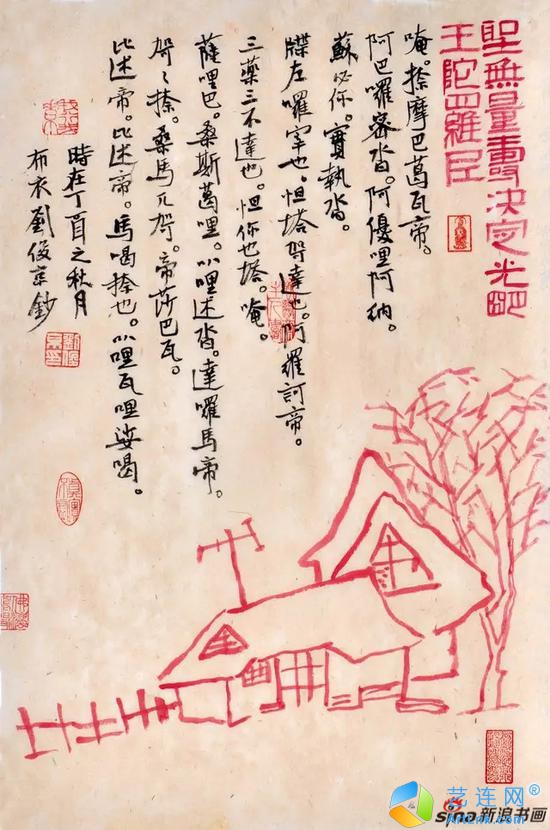 聖無量壽決定光明
王陀羅尼
唵。捺摩巴葛瓦帝。
阿巴囉密沓。阿優哩阿納。
蘇必你。實執沓。
牒左囉宰也。怛塔哿達也。阿羅訶帝。
三藥三不達也。怛你也塔。唵。
薩哩巴。桑斯葛哩。叭哩述沓。達囉馬帝。
哿々捺。桑馬兀哿。帝莎巴瓦。
比述帝。比述帝。馬喝捺也。叭哩瓦哩娑喝。
時在丁酉之秋月
布衣劉俊京鈔
艺连网
sina新浪书画